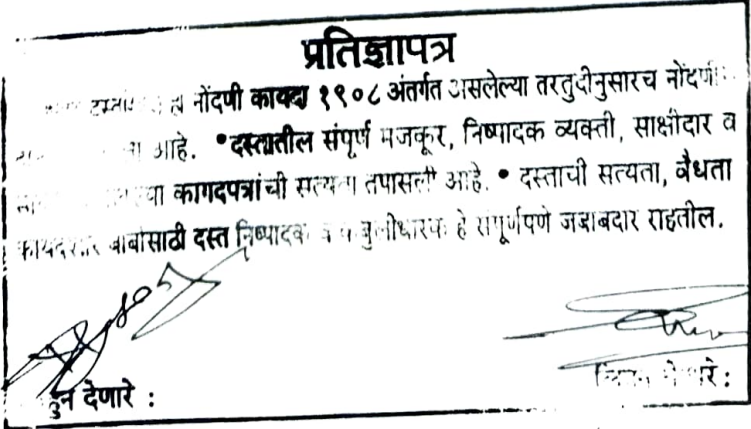 प्रतिज्ञापत्र
नोंदणी कायदा १९०८ अंतर्गत असलेल्या तरतुदीनुसारच नोंदणी
आहे. •दस्तातील संपूर्ण मजकूर, निष्पादक व्यक्ती, साक्षीदार व
कागदपत्रांची सत्यता तपासली आहे. • दस्ताची सत्यता, वैधता
बाबींसाठी दस्त निष्पादक व कबुलीधारक हे संपूर्णपणे जबाबदार राहतील.
देणारे :